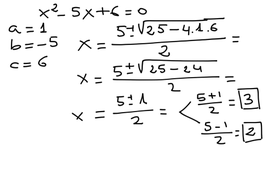 x² - 5x + 6 = 0
a = 1
b = -5
c = 6
x = (5 ± √(25 - 4.1.6))/2 =
x = (5 ± √(25 - 24))/2 =
x = (5 ± 1)/2 = < (5+1)/2 = 3
(5-1)/2 = 2